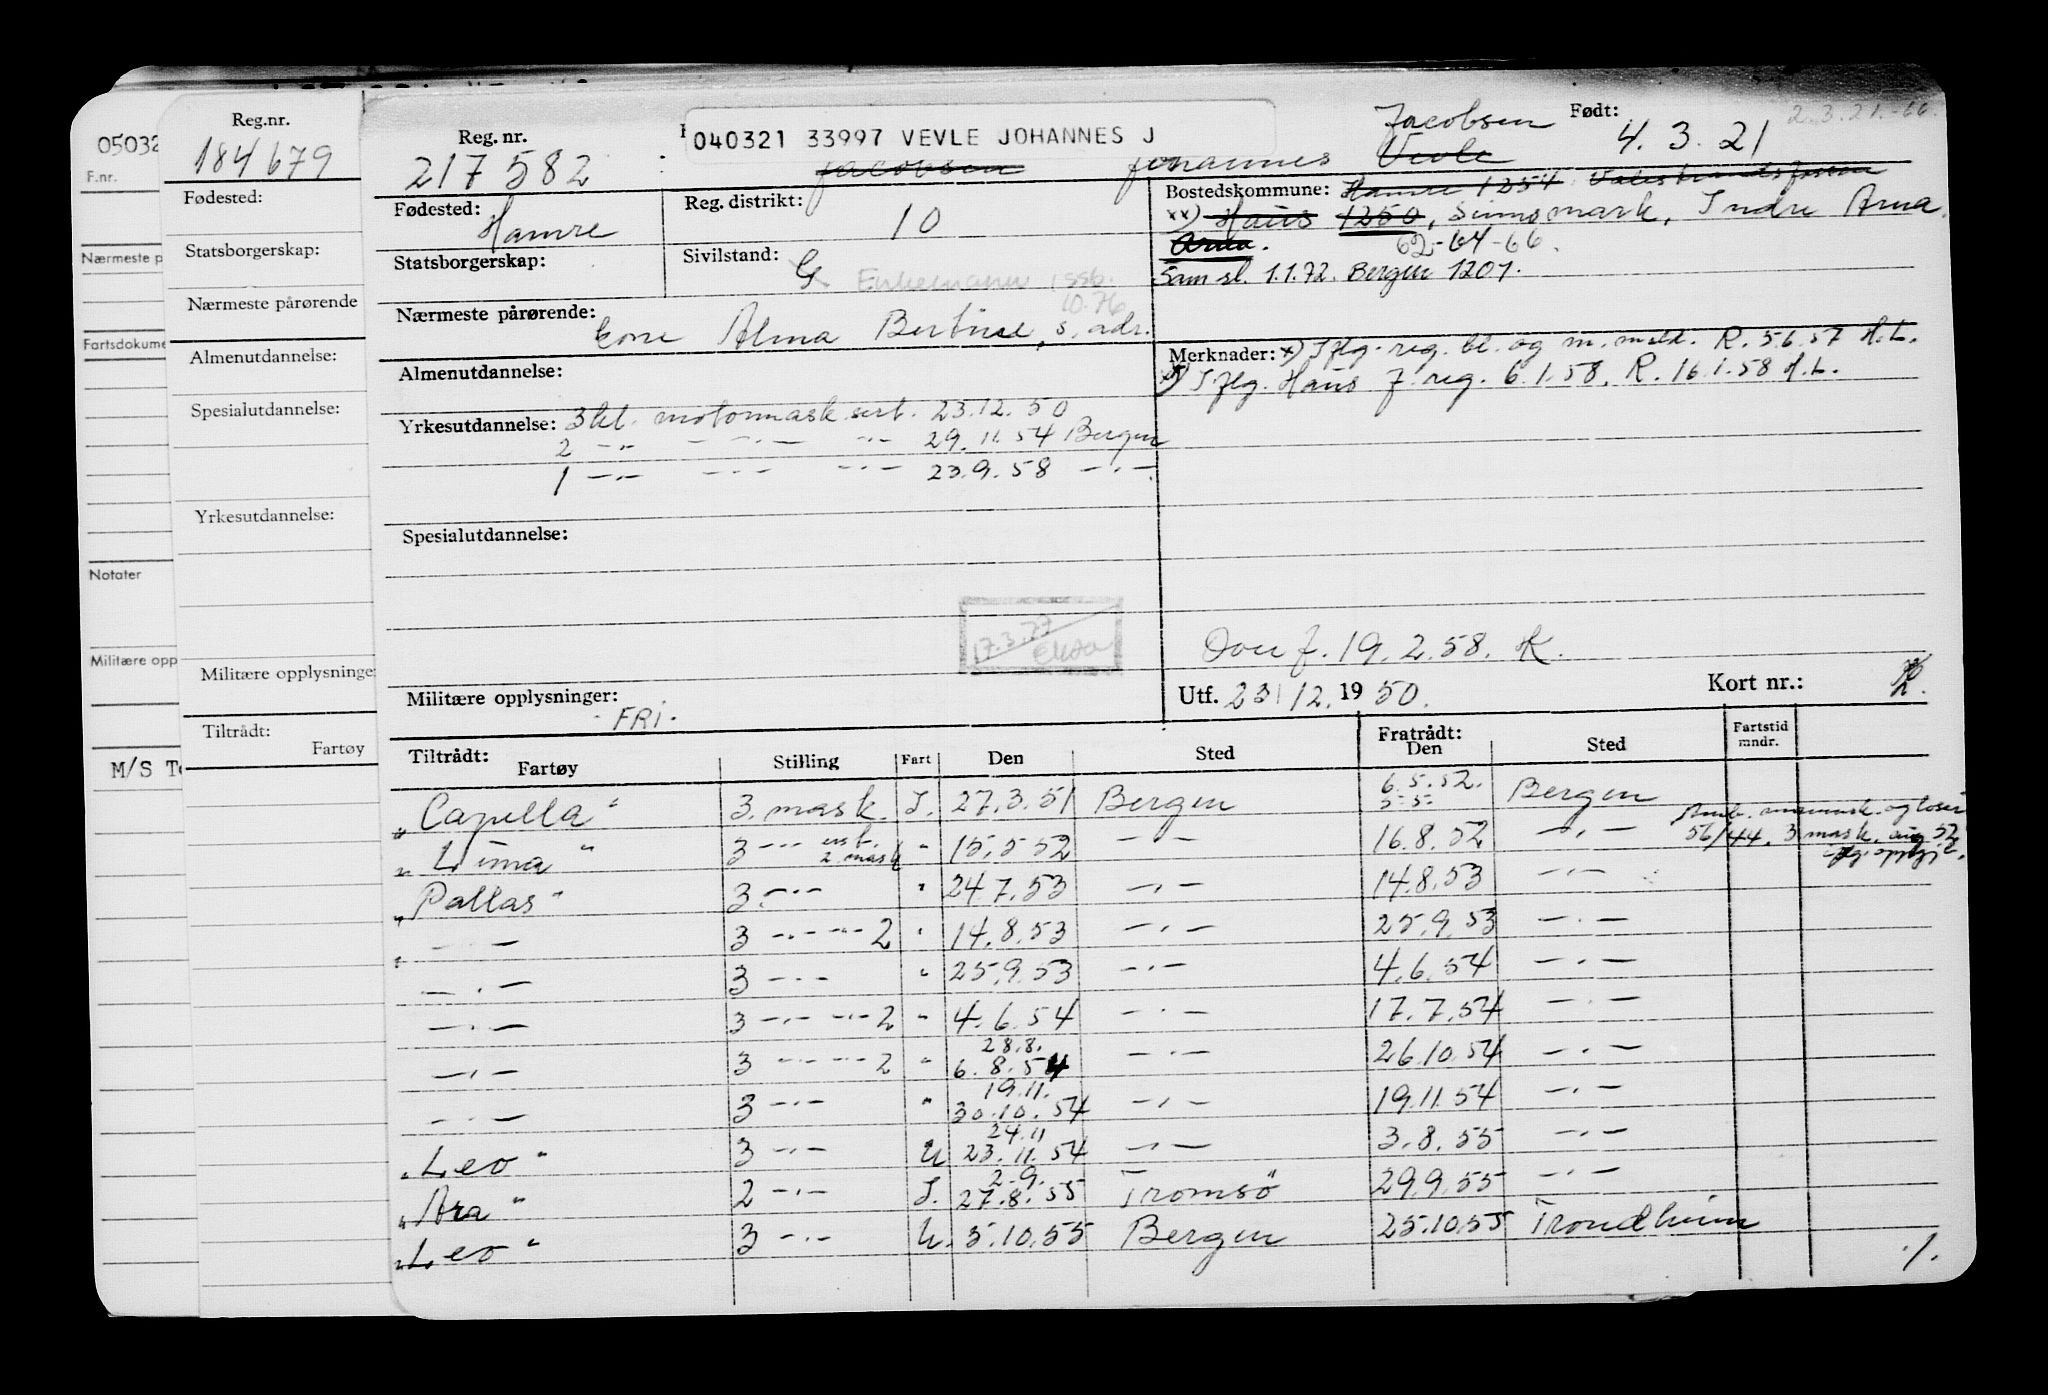 05032
F.nr.
Nærmeste p
Fartsdokume
Notater
Militære opp
M/S T
Reg.nr.
184679
Fødested:
Statsborgerskap:
Nærmeste pårørende
Almenutdannelse:
Spesialutdannelse:
Yrkesutdannelse:
Militære opplysninge
Tiltrådt:
Fartøy
Reg. nr.
217582
040321 33997 VEVLE JOHANNES J
Jacobsen Johannes Vevle
Jacobsen
Født:
4.3.21
2.3.21.-66.
Fødested: Hamre
Reg. distrikt: 10
Bostedskommune: Hamre 1254 Valestrandsfossen
xx) Haus 1250, Indre Arna.
Arna. 62-64-66.
Sam sl. 1.1.72. Bergen 1201.
Statsborgerskap:
Sivilstand: G Enkemann
10.76
Nærmeste pårørende: kone Alma Bertine, s. adr.
Merknader: x) Iflg. reg. bl. og m. meld. R. 5.6.57 H.L.
xx) Iflg. Haus f. reg. 6.1.58. R. 16.1.58 H.L.
Almenutdannelse:
Yrkesutdannelse: 3kl. motormask sert. 23.12.50
2 -"- -"- -"- 29.11.54 Bergen
1 -"- -"- -"- 23.9.58 -"-
Spesialutdannelse:
17.3.77
f. 19.2.58. H.
Militære opplysninger: FRI.
Utf. 23/12.1950.
Kort nr.:
Tiltrådt:
Fartøy Stilling Fart Den Sted
Fratrådt:
Den Sted Fartstid mndr.
"Capella" 3. mask. I. 27.3.51 Bergen 6.5.52. 5-5- Bergen
"Lima" 3 -"- 2. mask " 15.5.52 -"- 16.8.52 -"- 56/44. 3 mask. aug 52
"Pallas" 3. -"- " 24.7.53 -"- 14.8.53 -"-
" -"- 3 -"- -"- 2 " 14.8.53 -"- 25.9.53 -"-
-"- 3 -"- " 25.9.53 -"- 4.6.54 -"-
-"- 3 -"- -"- 2 " 4.6.54 -"- 17.7.54 -"-
-"- 3 -"- -"- 2 " 28.8. 6.8.54 -"- 26.10.54 -"-
-"- 3 -"- " 19.11. 30.10.54 -"- 19.11.54 -"-
"Leo" 3 -"- U 24.11 23.11.54 -"- 3.8.55 -"-
"Ara" 2 -"- I. 2.9. 27.8.55 Tromsö 29.9.55 -"-
"Leo" 3 -"- U. 5.10.55 Bergen 25.10.55 Trondheim
./.